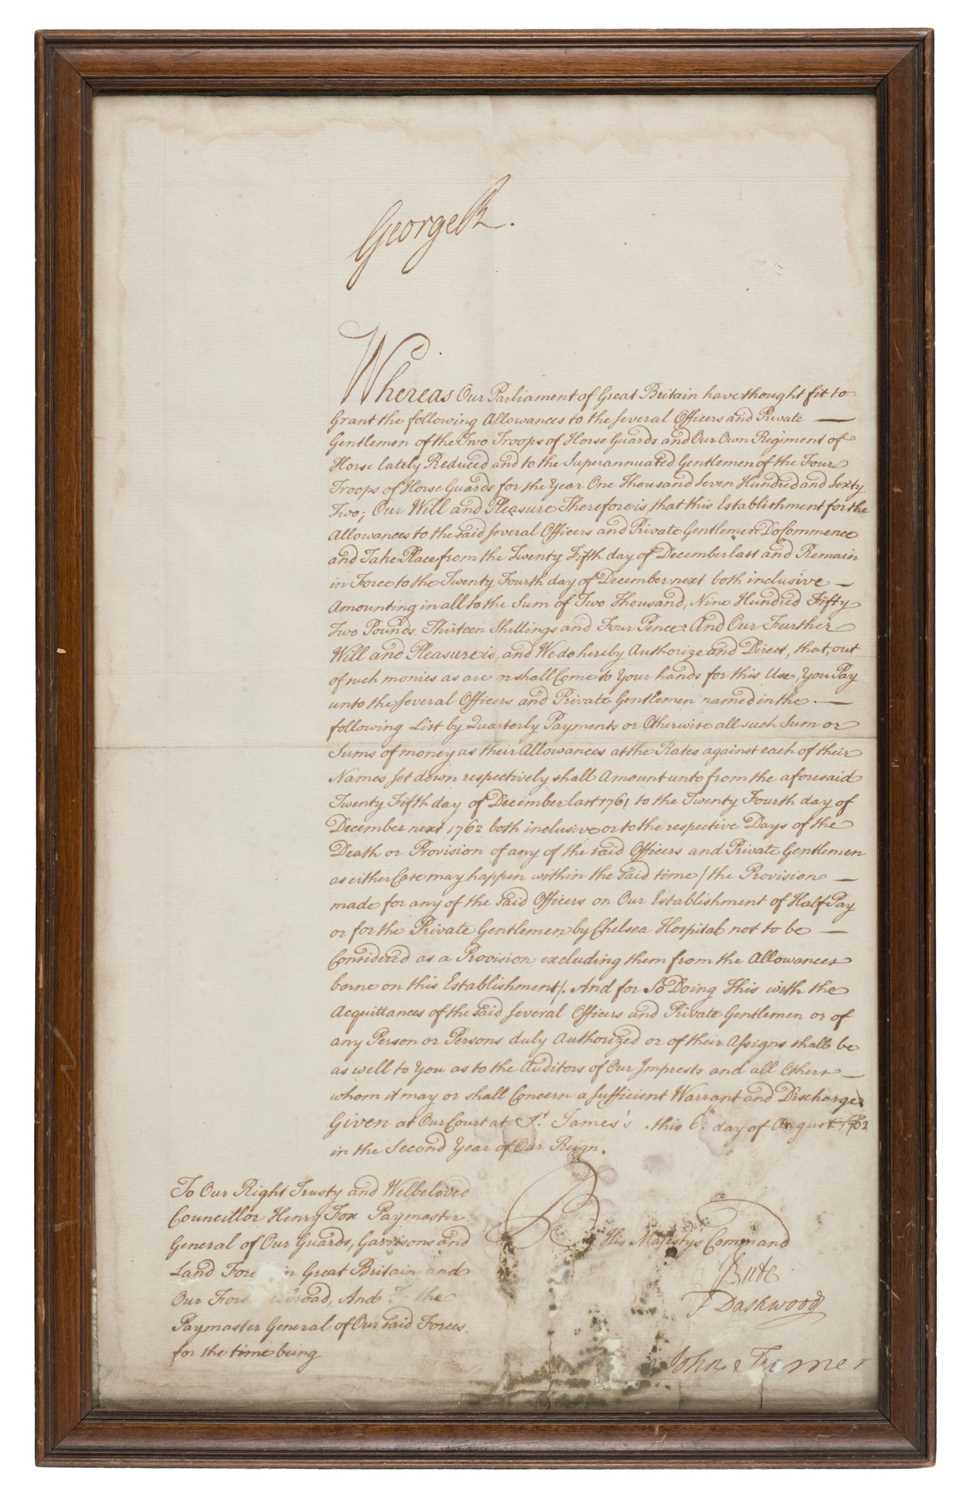 George R.
Whereas Our Parliament of Great Britain have thought fit to
Grant the following Allowances to the several Officers and Private
Gentlemen of the Two Troops of Horse Guards and Our Own Regiment of
Horse lately Reduced and to the Superannuated Gentlemen of the Four
Troops of Horse Guards for the Year One Thousand Seven Hundred and Sixty
Two; Our Will and Pleasure Therefore is that this Establishment for the
Allowances to the said several Officers and Private Gentlemen Do Commence
and Take Place from the Twenty Fifth day of December last and Remain
in Force to the Twenty Fourth day of December next both inclusive
Amounting in all to the Sum of Two Thousand, Nine Hundred Fifty
Two Pounds Thirteen Shillings and Four Pence And Our Further
Will and Pleasure is, and We do hereby Authorize and Direct, that, out
of such monies as are or shall Come to Your hands for this Use, You Pay
unto the several Officers and Private Gentlemen named in the
following List by Quarterly Payments or Otherwise all such Sum or
Sums of money as their Allowances at the Rates against each of their
Names set down respectively shall Amount unto from the aforesaid
Twenty Fifth day of December last 1761 to the Twenty Fourth day of
December next 1762 both inclusive or to the respective Days of the
Death or Provision of any of the said Officers and Private Gentlemen
as either Case may happen within the said time / the Provision
made for any of the said Officers on Our Establishment of Half Pay
or for the Private Gentlemen by Chelsea Hospital not to be
Considered as a Provision excluding them from the Allowances
borne on this Establishment /. And for So Doing This with the
Acquittances of the said several Officers and Private Gentlemen or of
any Person or Persons duly Authorized or of their Assigns shall be
as well to You as to the Auditors of Our Imprests and all Others
whom it may or shall Concern a sufficient Warrant and Discharge
Given at Our Court at St. James's this 6th day of August 1762
in the Second Year of Our Reign.
To Our Right Trusty and Welbeloved
Councillor Henry Fox Paymaster
General of Our Guards, Garrisons and
Land in Great Britain and
Our And the
Paymaster General of Our said Forces
for the time being
By His Majesty's Command
Bute
F Dashwood
John